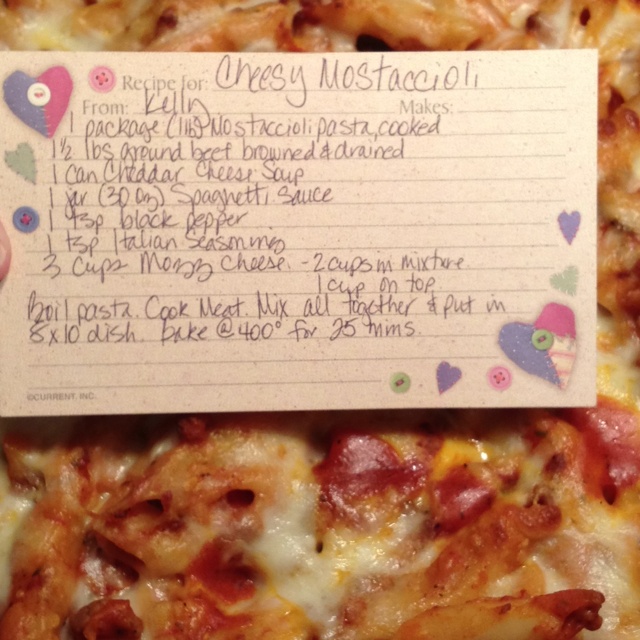 Recipe for: Cheesy Mostaccioli
From: Kelly Makes:
1 package (1lb) Mostaccioli pasta, cooked
1½ lbs ground beef browned & drained
1 can Cheddar Cheese Soup
1 jar (30 oz) Spaghetti Sauce
1 tsp black pepper
1 tsp Italian Seasoning
3 cups Mozz Cheese. - 2 cups in mixture
1 cup on top
Boil pasta. Cook Meat. Mix all together & put in
8x10 dish. bake @ 400° for 25 mins.
©CURRENT, INC.